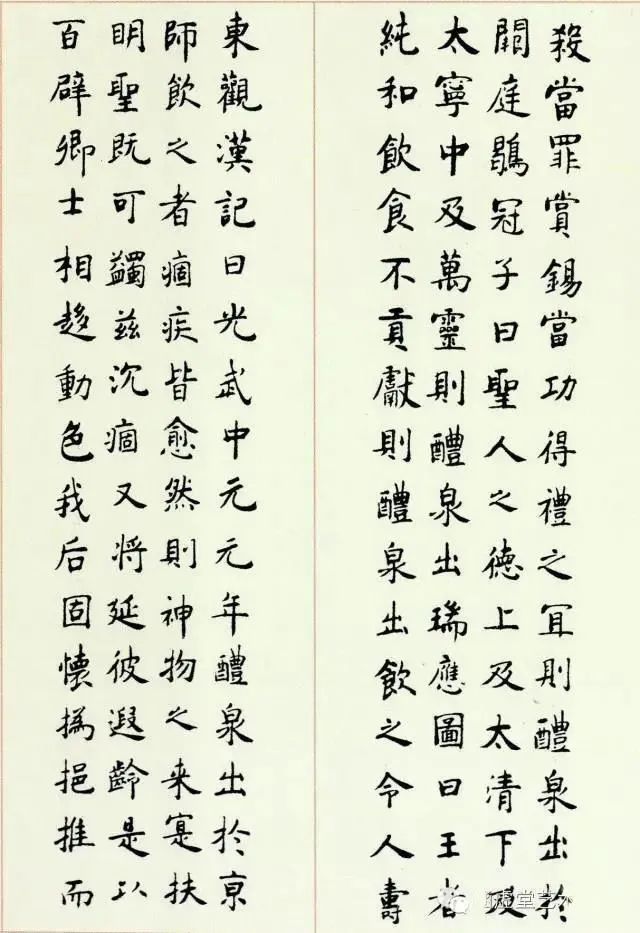 殺當罪賞錫當功得禮之冝則醴泉出於
闕庭鶡冠子曰聖人之德上及太清下及
太寧中及萬靈則醴泉出瑞應圖曰王者
純和飲食不貢獻則醴泉出飲之令人壽
東觀漢記曰光武中元元年醴泉出於京
師飲之者痼疾皆愈然則神物之来寔扶
明聖既可蠲兹沉痼又将延彼遐齡是以
百辟卿士相趍動色我后固懐撝挹推而